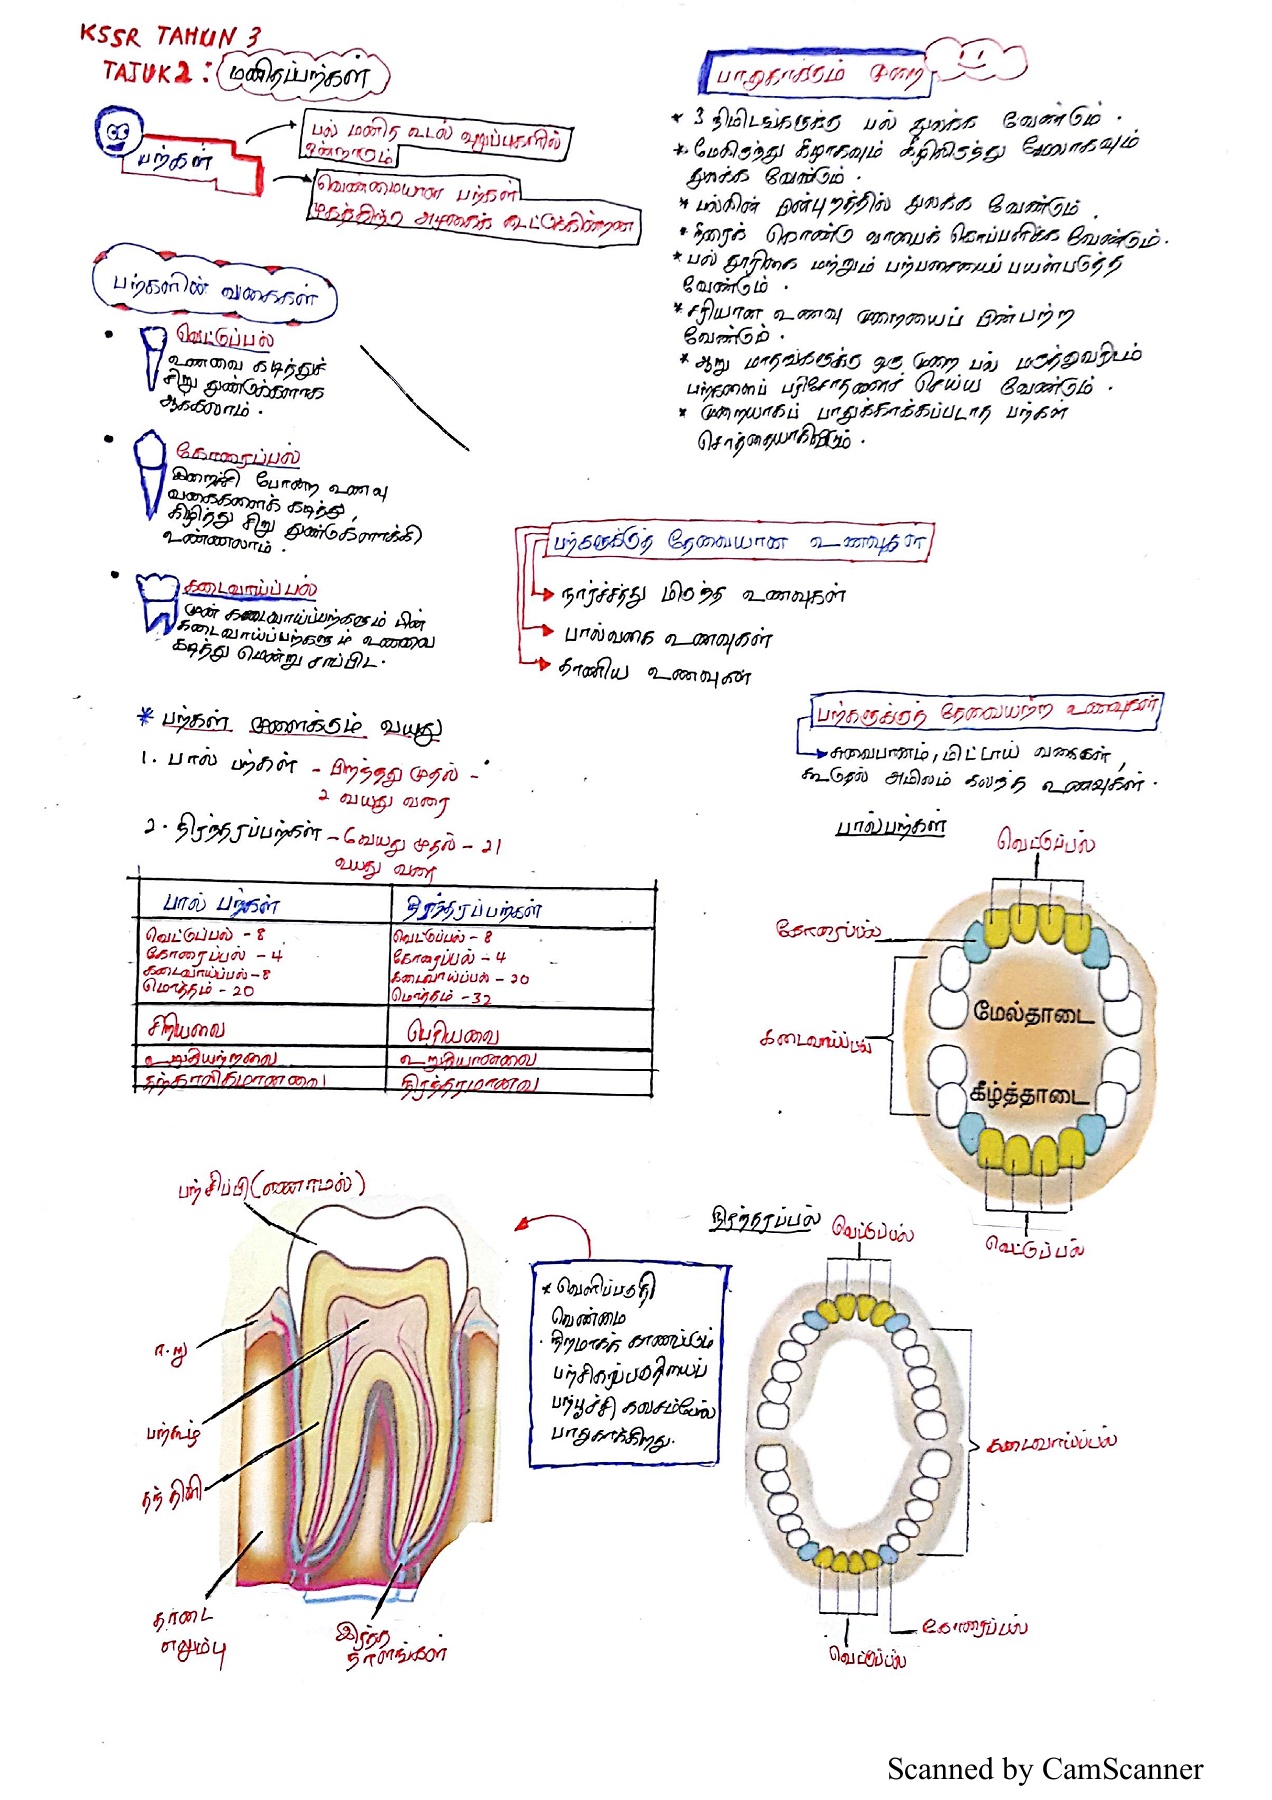 KSSR TAHUN 3
TAJUK 2 : மனிதப்பற்கள்
பற்கள்
பல் மனித உடல் உறுப்புகளில்
ஒன்றாகும்
வெண்மையான பற்கள்
முகத்திற்கு அழகைக் கூட்டுகின்றன
பற்களின் வகைகள்
வெட்டுப்பல்
உணவை கடித்துச்
சிறு துண்டுகளாக
ஆக்கலாம் .
கோரைப்பல்
இறைச்சி போன்ற உணவு
வகைகளைக் கடித்து,
கிழித்து சிறு துண்டுகளாக்கி
உண்ணலாம் .
கடைவாய்ப்பல்
முன் கடைவாய்ப்பற்களும் பின்
கடைவாய்ப்பற்களும் உணவை
கடித்து மென்று சாப்பிட .
பாதுகாக்கும் முறை
* 3 நிமிடங்களுக்கு பல் துலக்க வேண்டும் .
* மேலிருந்து கீழாகவும் கீழிலிருந்து மேலாகவும்
துலக்க வேண்டும் .
* பல்லின் பின்புறத்தில் துலக்க வேண்டும் .
* நீரைக் கொண்டு வாயைக் கொப்பளிக்க வேண்டும் .
* பல் தூரிகை மற்றும் பற்பசையைப் பயன்படுத்த
வேண்டும் .
* சரியான உணவு முறையைப் பின்பற்ற
வேண்டும் .
* ஆறு மாதங்களுக்கு ஒரு முறை பல் மருத்துவரிடம்
பற்களைப் பரிசோதனைச் செய்ய வேண்டும் .
* முறையாகப் பாதுக்காக்கப்படாத பற்கள்
சொத்தையாகிவிடும் .
பற்களுக்குத் தேவையான உணவுகள்
நார்ச்சத்து மிகுந்த உணவுகள்
பால்வகை உணவுகள்
தானிய உணவுகள்
பற்களுக்குத் தேவையற்ற உணவுகள்
சுவைபானம், மிட்டாய் வகைகள்,
கூடுதல் அமிலம் கலந்த உணவுகள் .
* பற்கள் முளைக்கும் வயது
1. பால் பற்கள் - பிறந்தது முதல் -
2 வயது வரை
2. நிரந்தரப்பற்கள் - 6வயது முதல் - 21
வயது வரை
பால் பற்கள் நிரந்தரப்பற்கள்
வெட்டுப்பல் - 8 வெட்டுப்பல் - 8
கோரைப்பல் - 4 கோரைப்பல் - 4
கடைவாய்ப்பல் - 8 கடைவாய்ப்பல் - 20
மொத்தம் - 20 மொத்தம் - 32
சிறியவை பெரியவை
உறுதியற்றவை உறுதியானவை
தற்காலிகமானவை நிரந்தரமானவ
பால்பற்கள்
வெட்டுப்பல்
கோரைப்பல்
கடைவாய்ப்பல்
மேல்தாடை
கீழ்த்தாடை
வெட்டுப்பல்
பற்சிப்பி (எனாமல்)
ஈறு
பற்கூழ்
தந்தினி
தாடை
எலும்பு
இரத்த
நாளங்கள்
* வெளிப்பகுதி
வெண்மை
நிறமாகக் காணப்படும்
பற்பூச்சி கவசம்போல்
பாதுகாக்கிறது.
நிரந்தரப்பல்
வெட்டுப்பல்
கடைவாய்ப்பல்
கோரைப்பல்
வெட்டுப்பல்
Scanned by CamScanner